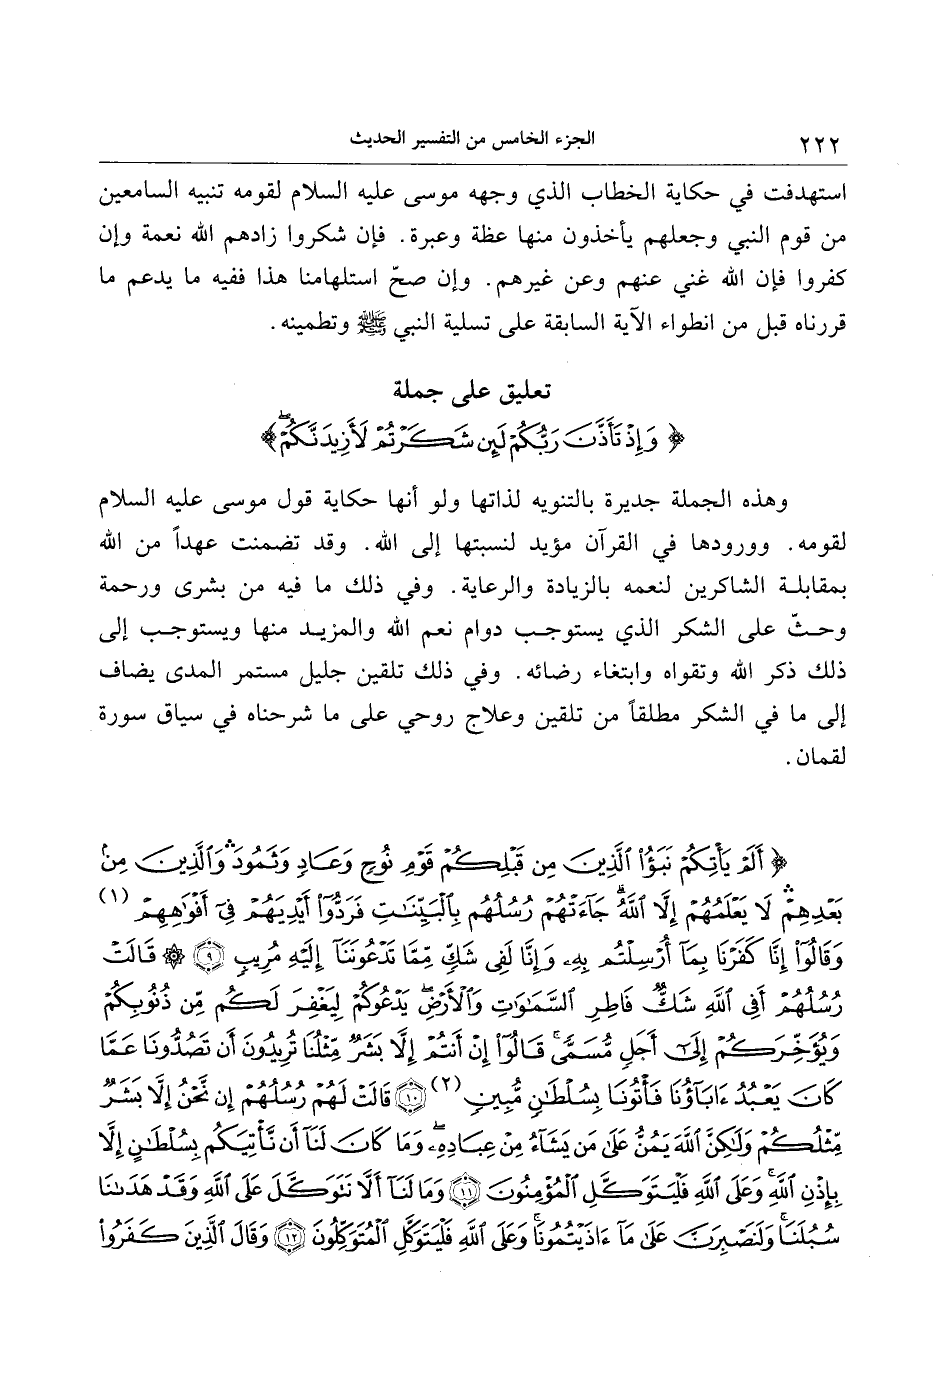 ٢٢٢ الجزء الخامس من التفسير الحديث
استهدفت في حكاية الخطاب الذي وجهه موسى عليه السلام لقومه تنبيه السامعين
من قوم النبي وجعلهم يأخذون منها عظة وعبرة. فإن شكروا زادهم الله نعمة وإن
كفروا فإن الله غني عنهم وعن غيرهم. وإن صحّ استلهامنا هذا ففيه ما يدعم ما
قررناه قبل من انطواء الآية السابقة على تسلية النبي ﷺ وتطمينه.
تعليق على جملة
﴿ وَإِذْ تَأَذَّنَ رَبُّكُمْ لَئِن شَكَرْتُمْ لَأَزِيدَنَّكُمْۖ ﴾
وهذه الجملة جديرة بالتنويه لذاتها ولو أنها حكاية قول موسى عليه السلام
لقومه. وورودها في القرآن مؤيد لنسبتها إلى الله. وقد تضمنت عهداً من الله
بمقابلة الشاكرين لنعمه بالزيادة والرعاية. وفي ذلك ما فيه من بشرى ورحمة
وحثّ على الشكر الذي يستوجب دوام نعم الله والمزيد منها ويستوجب إلى
ذلك ذكر الله وتقواه وابتغاء رضائه. وفي ذلك تلقين جليل مستمر المدى يضاف
إلى ما في الشكر مطلقاً من تلقين وعلاج روحي على ما شرحناه في سياق سورة
لقمان.
﴿ أَلَمْ يَأْتِكُمْ نَبَؤُا۟ ٱلَّذِينَ مِن قَبْلِكُمْ قَوْمِ نُوحٍ وَعَادٍ وَثَمُودَۛ وَٱلَّذِينَ مِنۢ
بَعْدِهِمْۛ لَا يَعْلَمُهُمْ إِلَّا ٱللَّهُۚ جَآءَتْهُمْ رُسُلُهُم بِٱلْبَيِّنَٰتِ فَرَدُّوٓا۟ أَيْدِيَهُمْ فِىٓ أَفْوَٰهِهِمْ (١)
وَقَالُوٓا۟ إِنَّا كَفَرْنَا بِمَآ أُرْسِلْتُم بِهِۦ وَإِنَّا لَفِى شَكٍّ مِّمَّا تَدْعُونَنَآ إِلَيْهِ مُرِيبٍ ٩ ۞ قَالَتْ
رُسُلُهُمْ أَفِى ٱللَّهِ شَكٌّ فَاطِرِ ٱلسَّمَٰوَٰتِ وَٱلْأَرْضِۖ يَدْعُوكُمْ لِيَغْفِرَ لَكُم مِّن ذُنُوبِكُمْ
وَيُؤَخِّرَكُمْ إِلَىٰٓ أَجَلٍ مُّسَمًّىۚ قَالُوٓا۟ إِنْ أَنتُمْ إِلَّا بَشَرٌ مِّثْلُنَا تُرِيدُونَ أَن تَصُدُّونَا عَمَّا
كَانَ يَعْبُدُ ءَابَآؤُنَا فَأْتُونَا بِسُلْطَٰنٍ مُّبِينٍ (٢) ١٠ قَالَتْ لَهُمْ رُسُلُهُمْ إِن نَّحْنُ إِلَّا بَشَرٌ
مِّثْلُكُمْ وَلَٰكِنَّ ٱللَّهَ يَمُنُّ عَلَىٰ مَن يَشَآءُ مِنْ عِبَادِهِۦۖ وَمَا كَانَ لَنَآ أَن نَّأْتِيَكُم بِسُلْطَٰنٍ إِلَّا
بِإِذْنِ ٱللَّهِۚ وَعَلَى ٱللَّهِ فَلْيَتَوَكَّلِ ٱلْمُؤْمِنُونَ ١١ وَمَا لَنَآ أَلَّا نَتَوَكَّلَ عَلَى ٱللَّهِ وَقَدْ هَدَىٰنَا
سُبُلَنَاۚ وَلَنَصْبِرَنَّ عَلَىٰ مَآ ءَاذَيْتُمُونَاۚ وَعَلَى ٱللَّهِ فَلْيَتَوَكَّلِ ٱلْمُتَوَكِّلُونَ ١٢ وَقَالَ ٱلَّذِينَ كَفَرُوا۟